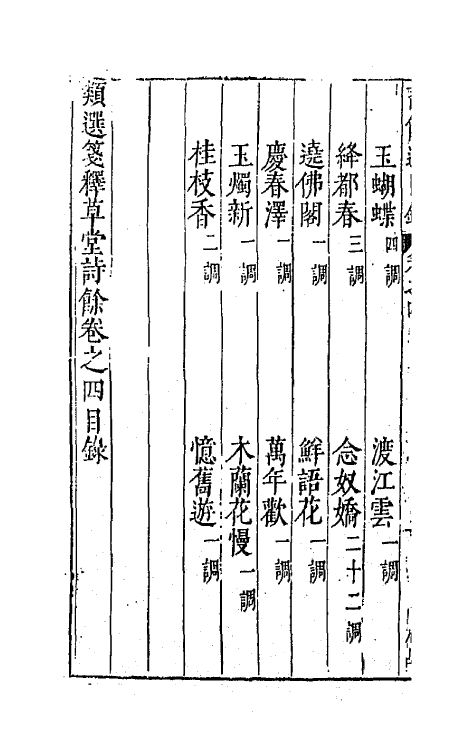 玉蝴蝶四調 渡江雲一調
絳都春三調 念奴嬌二十二調
遶佛閣一調 鮮語花一調
慶春澤一調 萬年歡一調
玉燭新一調 木蘭花慢一調
桂枝香二調 憶舊遊一調
類選箋釋草堂詩餘卷之四目錄